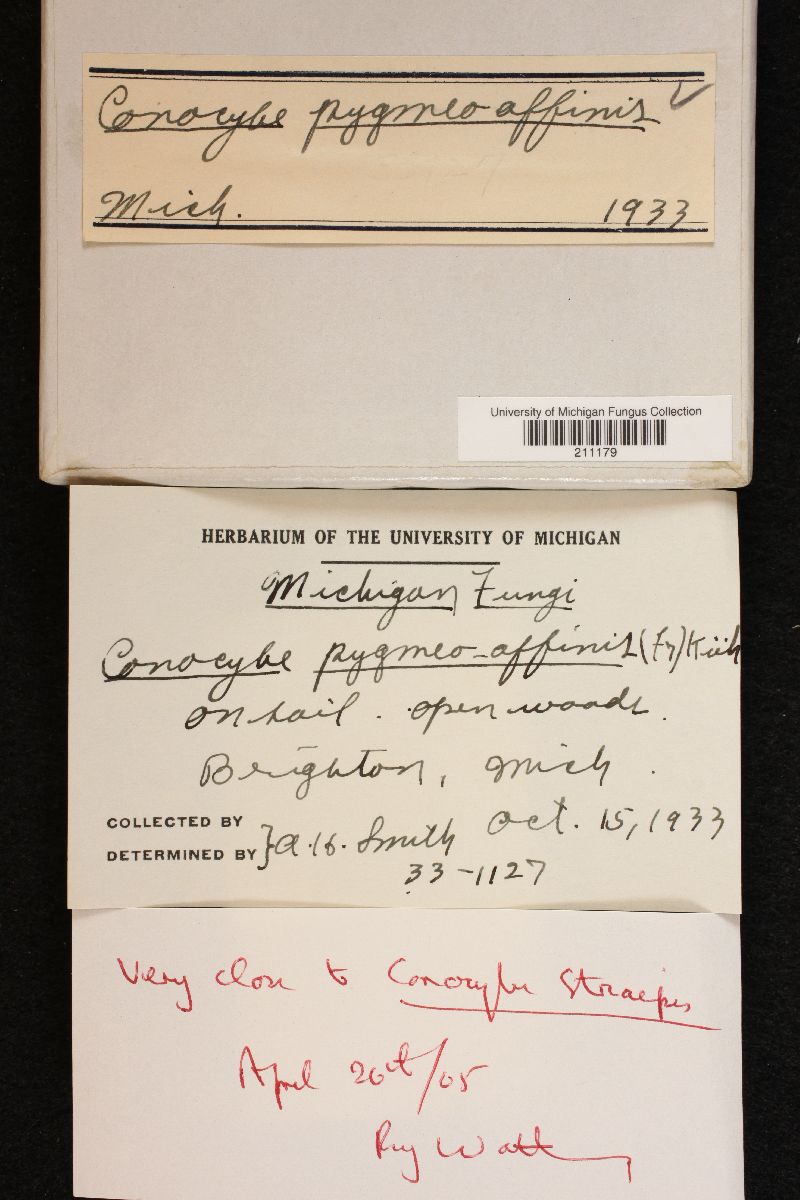 Conocybe pygmeo-affinis ✓
Mich. 1933
University of Michigan Fungus Collection
211179
HERBARIUM OF THE UNIVERSITY OF MICHIGAN
Michigan Fungi
Conocybe pygmeo-affinis (Fr) Küh
on soil. open woods.
Brighton, Mich.
COLLECTED BY
DETERMINED BY } A.H. Smith Oct. 15, 1933
33-1127
Very close to Conocybe
April 20th/05
Roy Watl